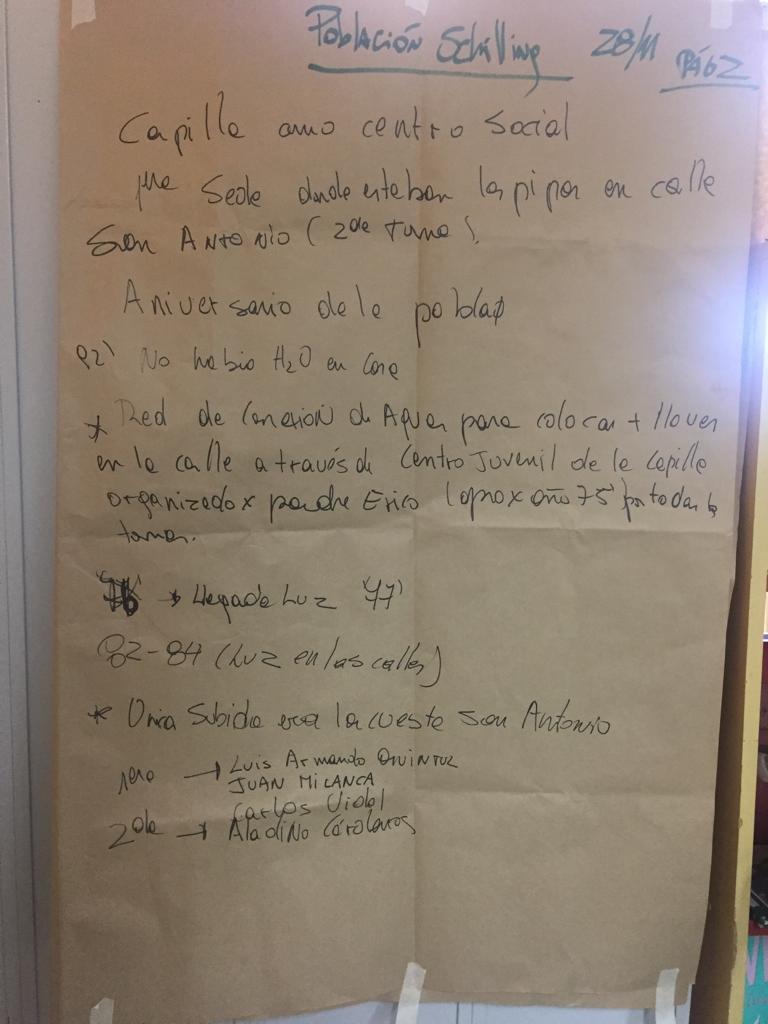 Población Schilling 28/11 PÁG 2
Capilla como centro Social
1ra Sede donde estaban las pipas en calle
San ANTONIO (2da toma).
Aniversario de la poblaø
82' No había H2O en Casa
* Red de Conexión de Agua para colocar + llaves
en la calle a través de Centro Juvenil de la Capilla
organizado x padre Erico (aprox año 75' para todas las
tomas.
→ Llegada Luz '77'
82-84 (Luz en las calles)
* Única Subida era la cuesta San Antonio
1era → Luis Armando
JUAN MILANCA
Carlos Vidal
2da → Aladino